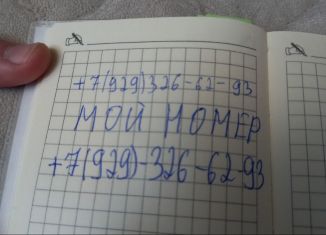 +7(929)326-62-93
МОЙ НОМЕР
+7(929)-326-62-93